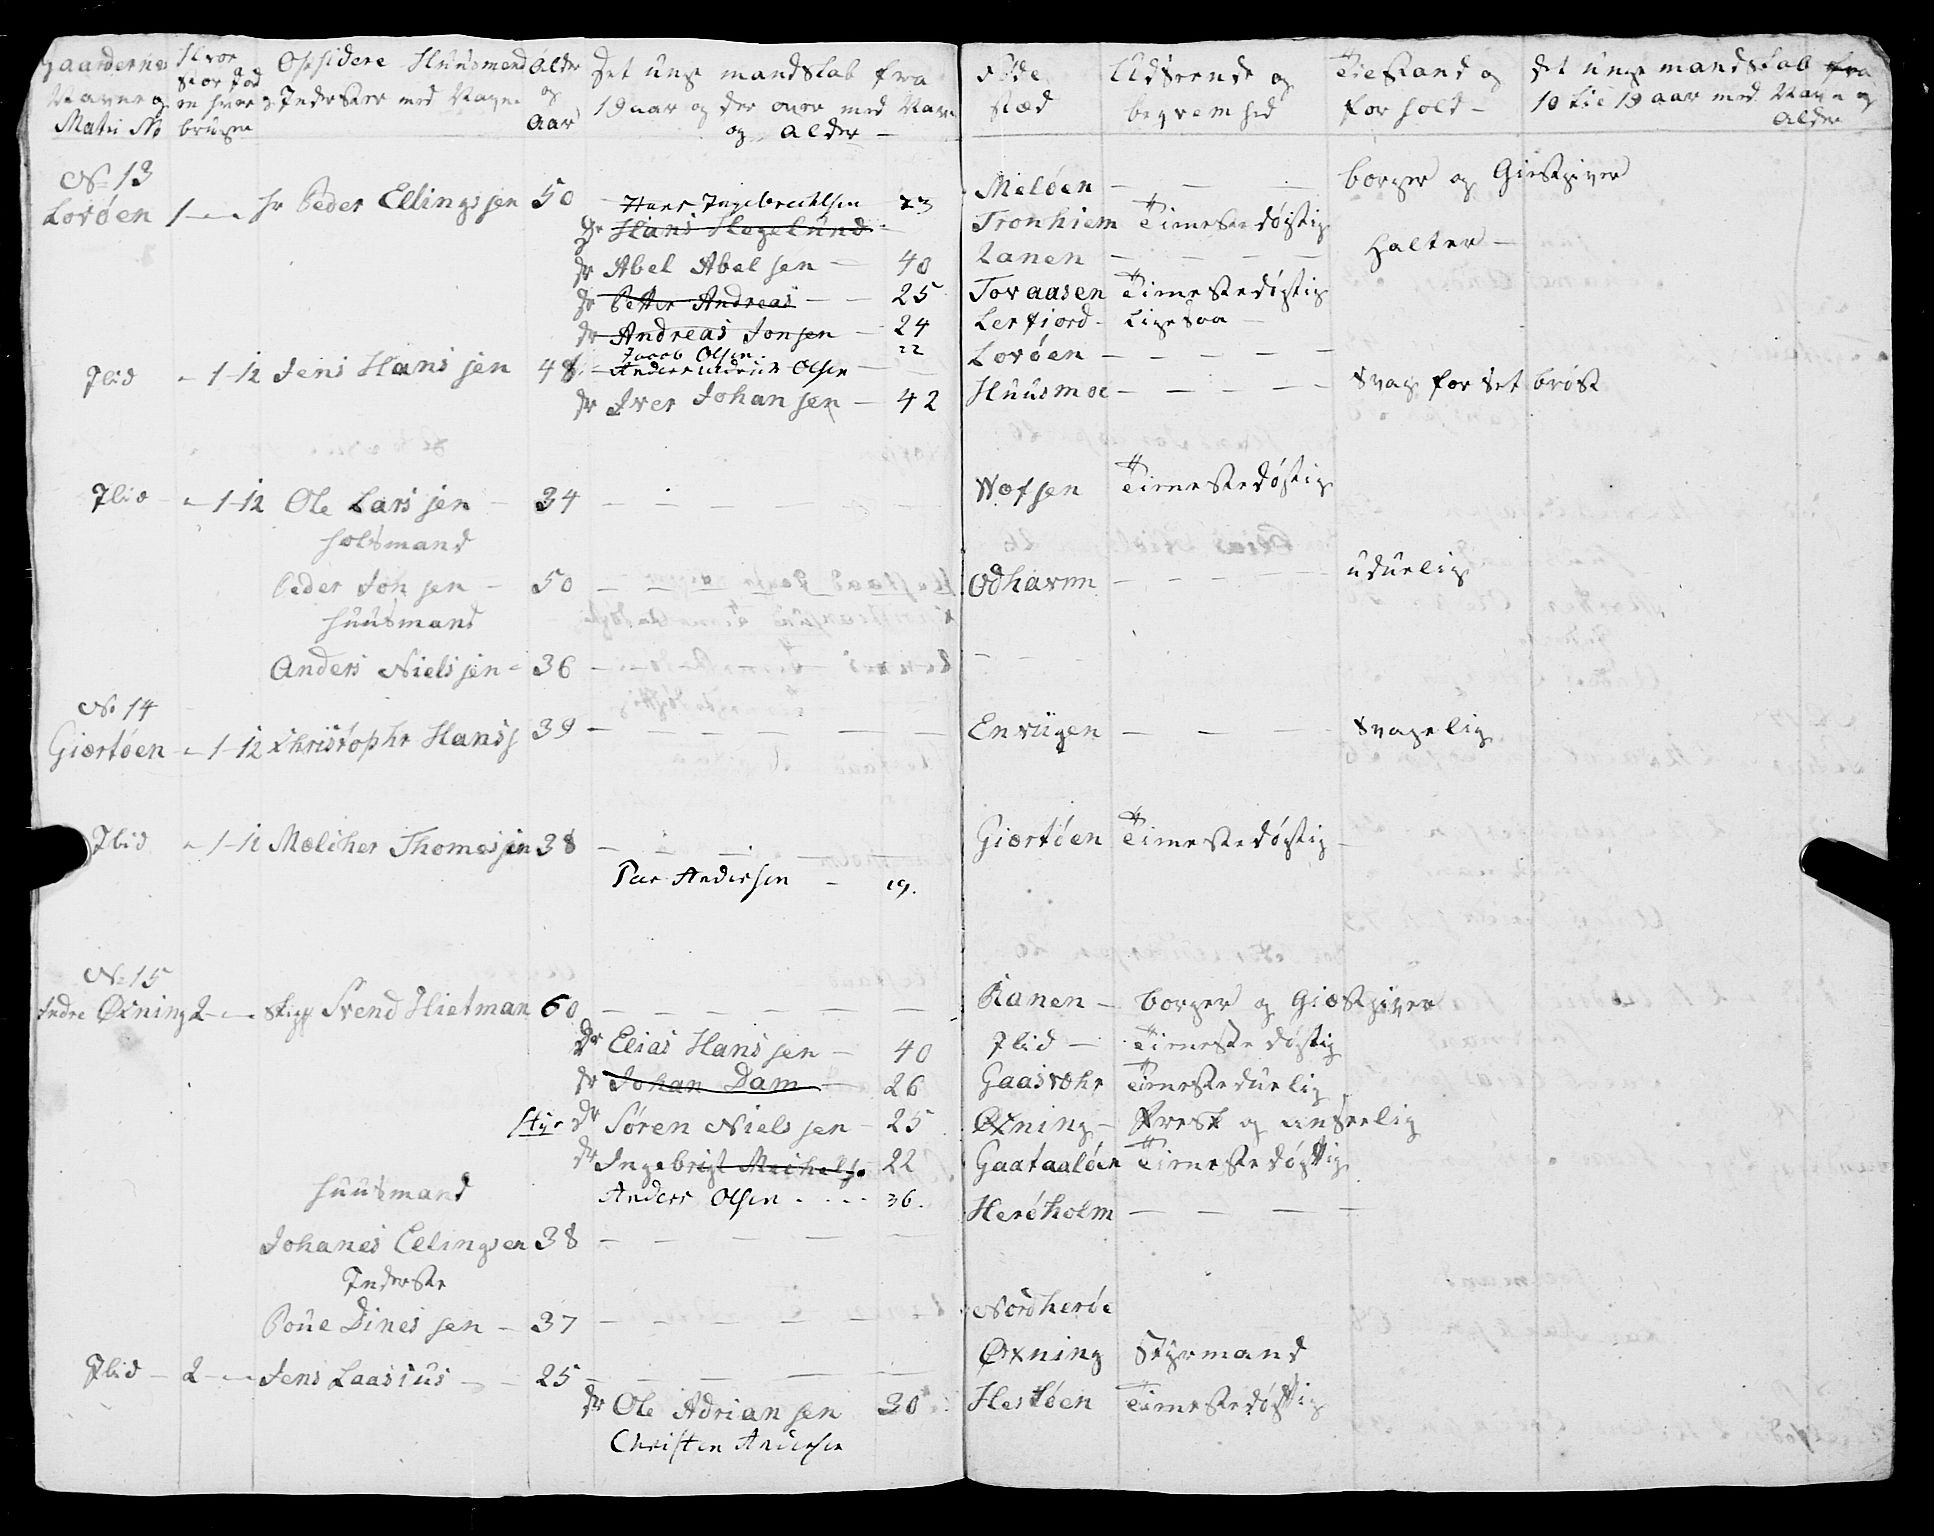 Gaardernes Navne og Matri No
Hvor stor Jod en hver bruger
Opsidere Huusmend Jnderster med Navne
Alder og Aar
Det unge mandskab fra 19 aar og der over med Navn og Alder
Føde stæd
Udseende og beqvemhed
Tilstand og forhold
det unge mandskab fra 10 til 19 aar med Navn og Alder
No 13
Lovøen 1 hr Peder Ellingssen 50 Hans Ingebrechtsen 23 Meløen borger og Giestgiver
dr Hans Hegelund Tronhiem Timestedøgtig
dr Abel Abelsen 40 Ranen halter
dr Petter Andreas 25 Tovaasen Timestedøgtig
dr Andreas Jonsen 24 Lerfiord Ligesaa
Jacob Olsen 22
Jbid 1-12 Jens Hanssen 48 Olsen Lovøen
dr Iver Johansen 42 Huusmoe Svag for Set brøst
Jbid 1-12 Ole Larssen 34 Wefsen Timestedøgtig
holsmand
Peder Johsen 50 Odhavnn uduelig
huusmand
Anders Nielssen 36
No 14
Giærtøen 1-12 Christophr Hanss 39 Envügen Svagelig
Jbid 1-12 Melcher Thomessen 38 Giærtøen Timestedøgtig
Peer Andersen 19.
No 15
Indre Øxning 2 Skipp Svend Hietman 60 Ranen borger og Giæstgiver
dr Elias Hanssen 40 Jbid Timestedøgtig
dr Johan Dam 26 Gaasvæhr Timesteduelig
Styr dr Søren Nielssen 25 Øxning frest og anseelig
dr Ingebrigt Michelss 22 Gaataaløen Timestedøgtig
huusmand Anders Olsen 36. Herøholm
Johanes Ellingsen 38
Jnderste
Poue Dinessen 37 Nordherøe
Jbid 2 Jens Laasius 25 Øxning Styrmand
dr Ole Adriansen 30 Hestøen Timestedøgtig
Christen Andersen